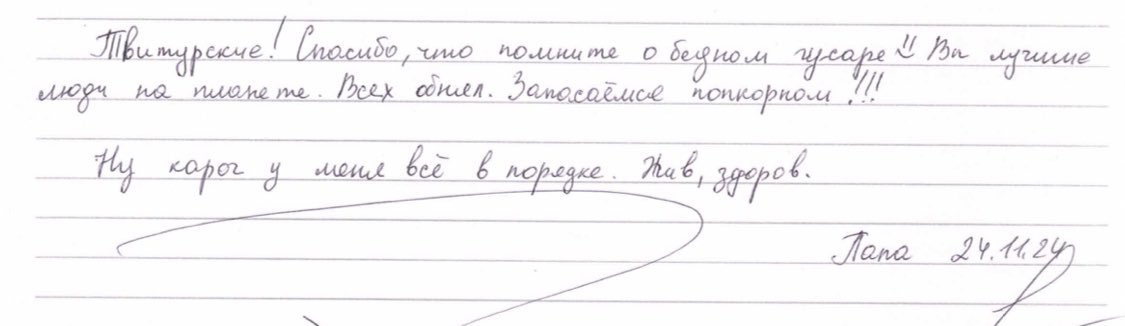 Твитурские! Спасибо, что помните о бедном гусаре!! Вы лучшие
люди на планете. Всех обнял. Запасаемся попкорном!!!
Ну кароч у меня всё в порядке. Жив, здоров.
Папа 24.11.24